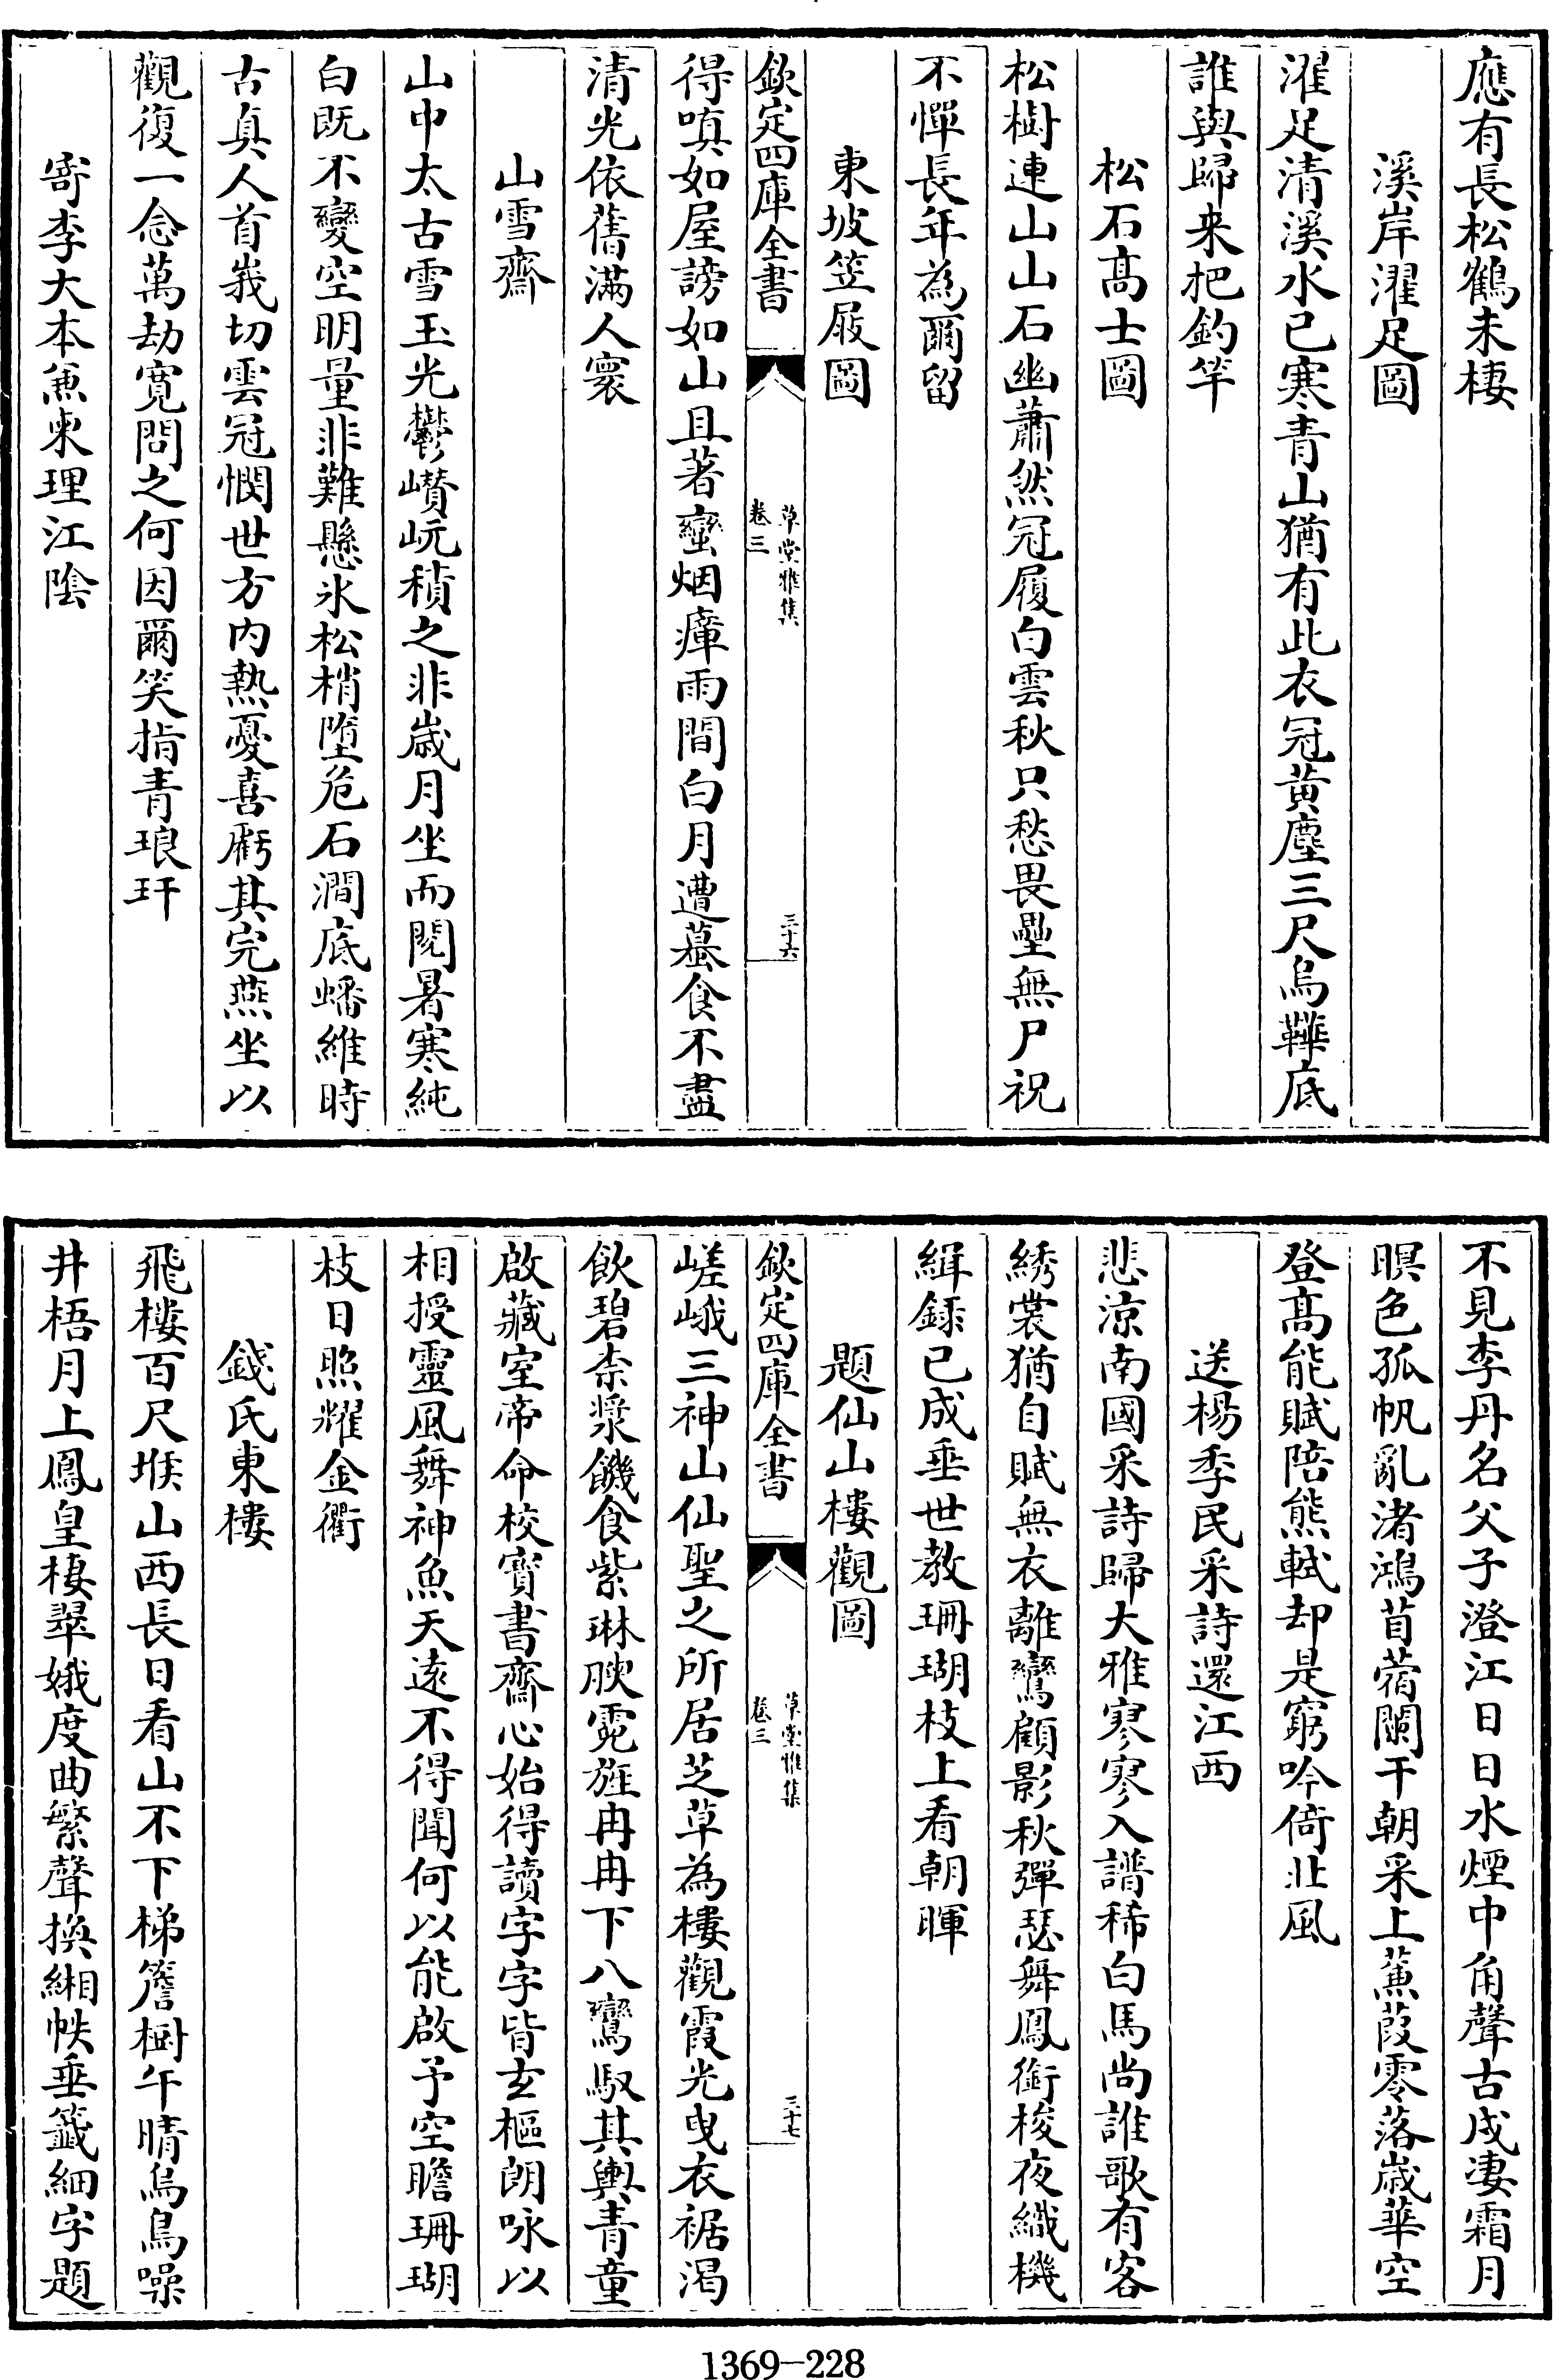 應有長松鶴未棲
溪岸濯足圖
濯足清溪水已寒青山猶有此衣冠黄塵三尺烏鞾底
誰與歸来把釣竿
松石髙士圖
松樹連山山石幽蕭然冠履白雲秋只愁畏壘無尸祝
不憚長年為爾留
東坡笠屐圖
欽定四庫全書
草堂雅集
卷三
三十六
得嗔如屋謗如山且著蠻烟瘴雨間白月遭蟇食不盡
清光依舊滿人寰
山雪齋
山中太古雪玉光鬱巑岏積之非歲月坐而閱暑寒純
白既不變空明量非難懸氷松梢墮危石澗底蟠維時
古真人首峩切雲冠憫世方内熱憂喜虧其完燕坐以
觀復一念萬劫寛問之何因爾笑指青琅玕
寄李大本兼柬理江陰
不見李丹名父子澄江日日水煙中角聲古戍凄霜月
暝色孤帆亂渚鴻苜蓿闌干朝采上蒹葭零落歲華空
登髙能賦陪熊軾却是窮吟倚北風
送楊季民采詩還江西
悲凉南國采詩歸大雅寥寥入譜稀白馬尚誰歌有客
綉裳猶自賦無衣離鸞顧影秋彈瑟舞鳳銜梭夜織機
緝録已成垂世教珊瑚枝上看朝暉
題仙山樓觀圖
欽定四庫全書
草堂雅集
卷三
三十七
嵯峨三神山仙聖之所居芝草為樓觀霞光曳衣裾渴
飲碧柰漿饑食紫琳腴霓旌冉冉下八鸞馭其輿青童
啟藏室帝命校寳書齋心始得讀字字皆玄樞朗咏以
相授靈風舞神魚天逺不得聞何以能啟予空瞻珊瑚
枝日照耀金衢
錢氏東樓
飛樓百尺堠山西長日看山不下梯簷樹午晴烏鳥噪
井梧月上鳳皇棲翠娥度曲繁聲換緗帙垂籖細字題
1369—228